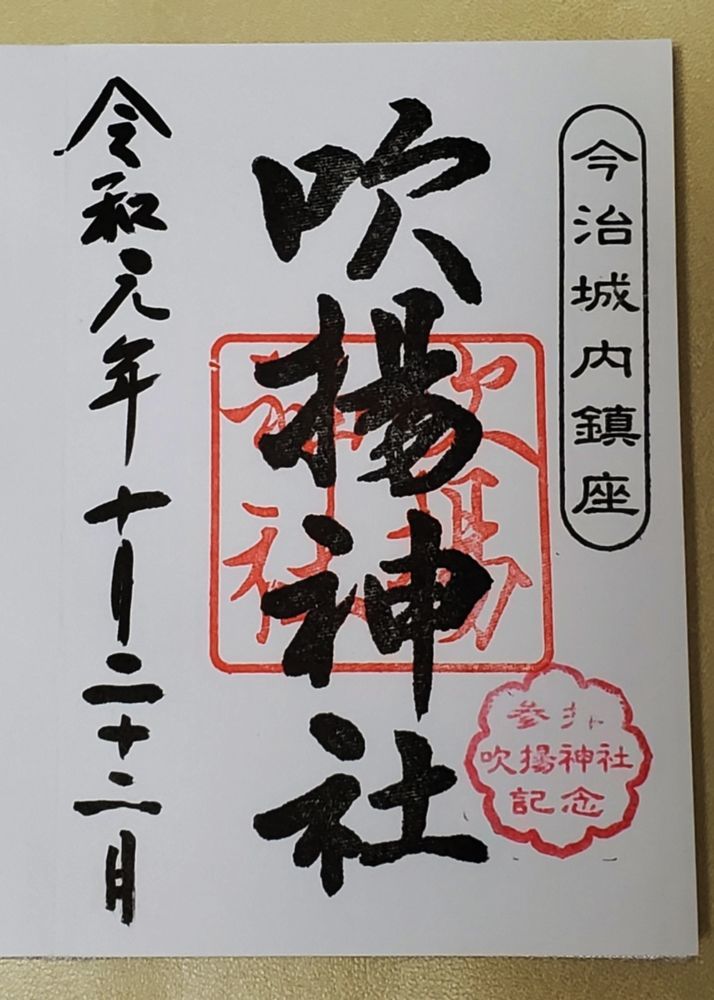 今治城内鎮座
吹揚神社
吹揚
神社
参拝
吹揚神社
記念
令和元年十月二十二日